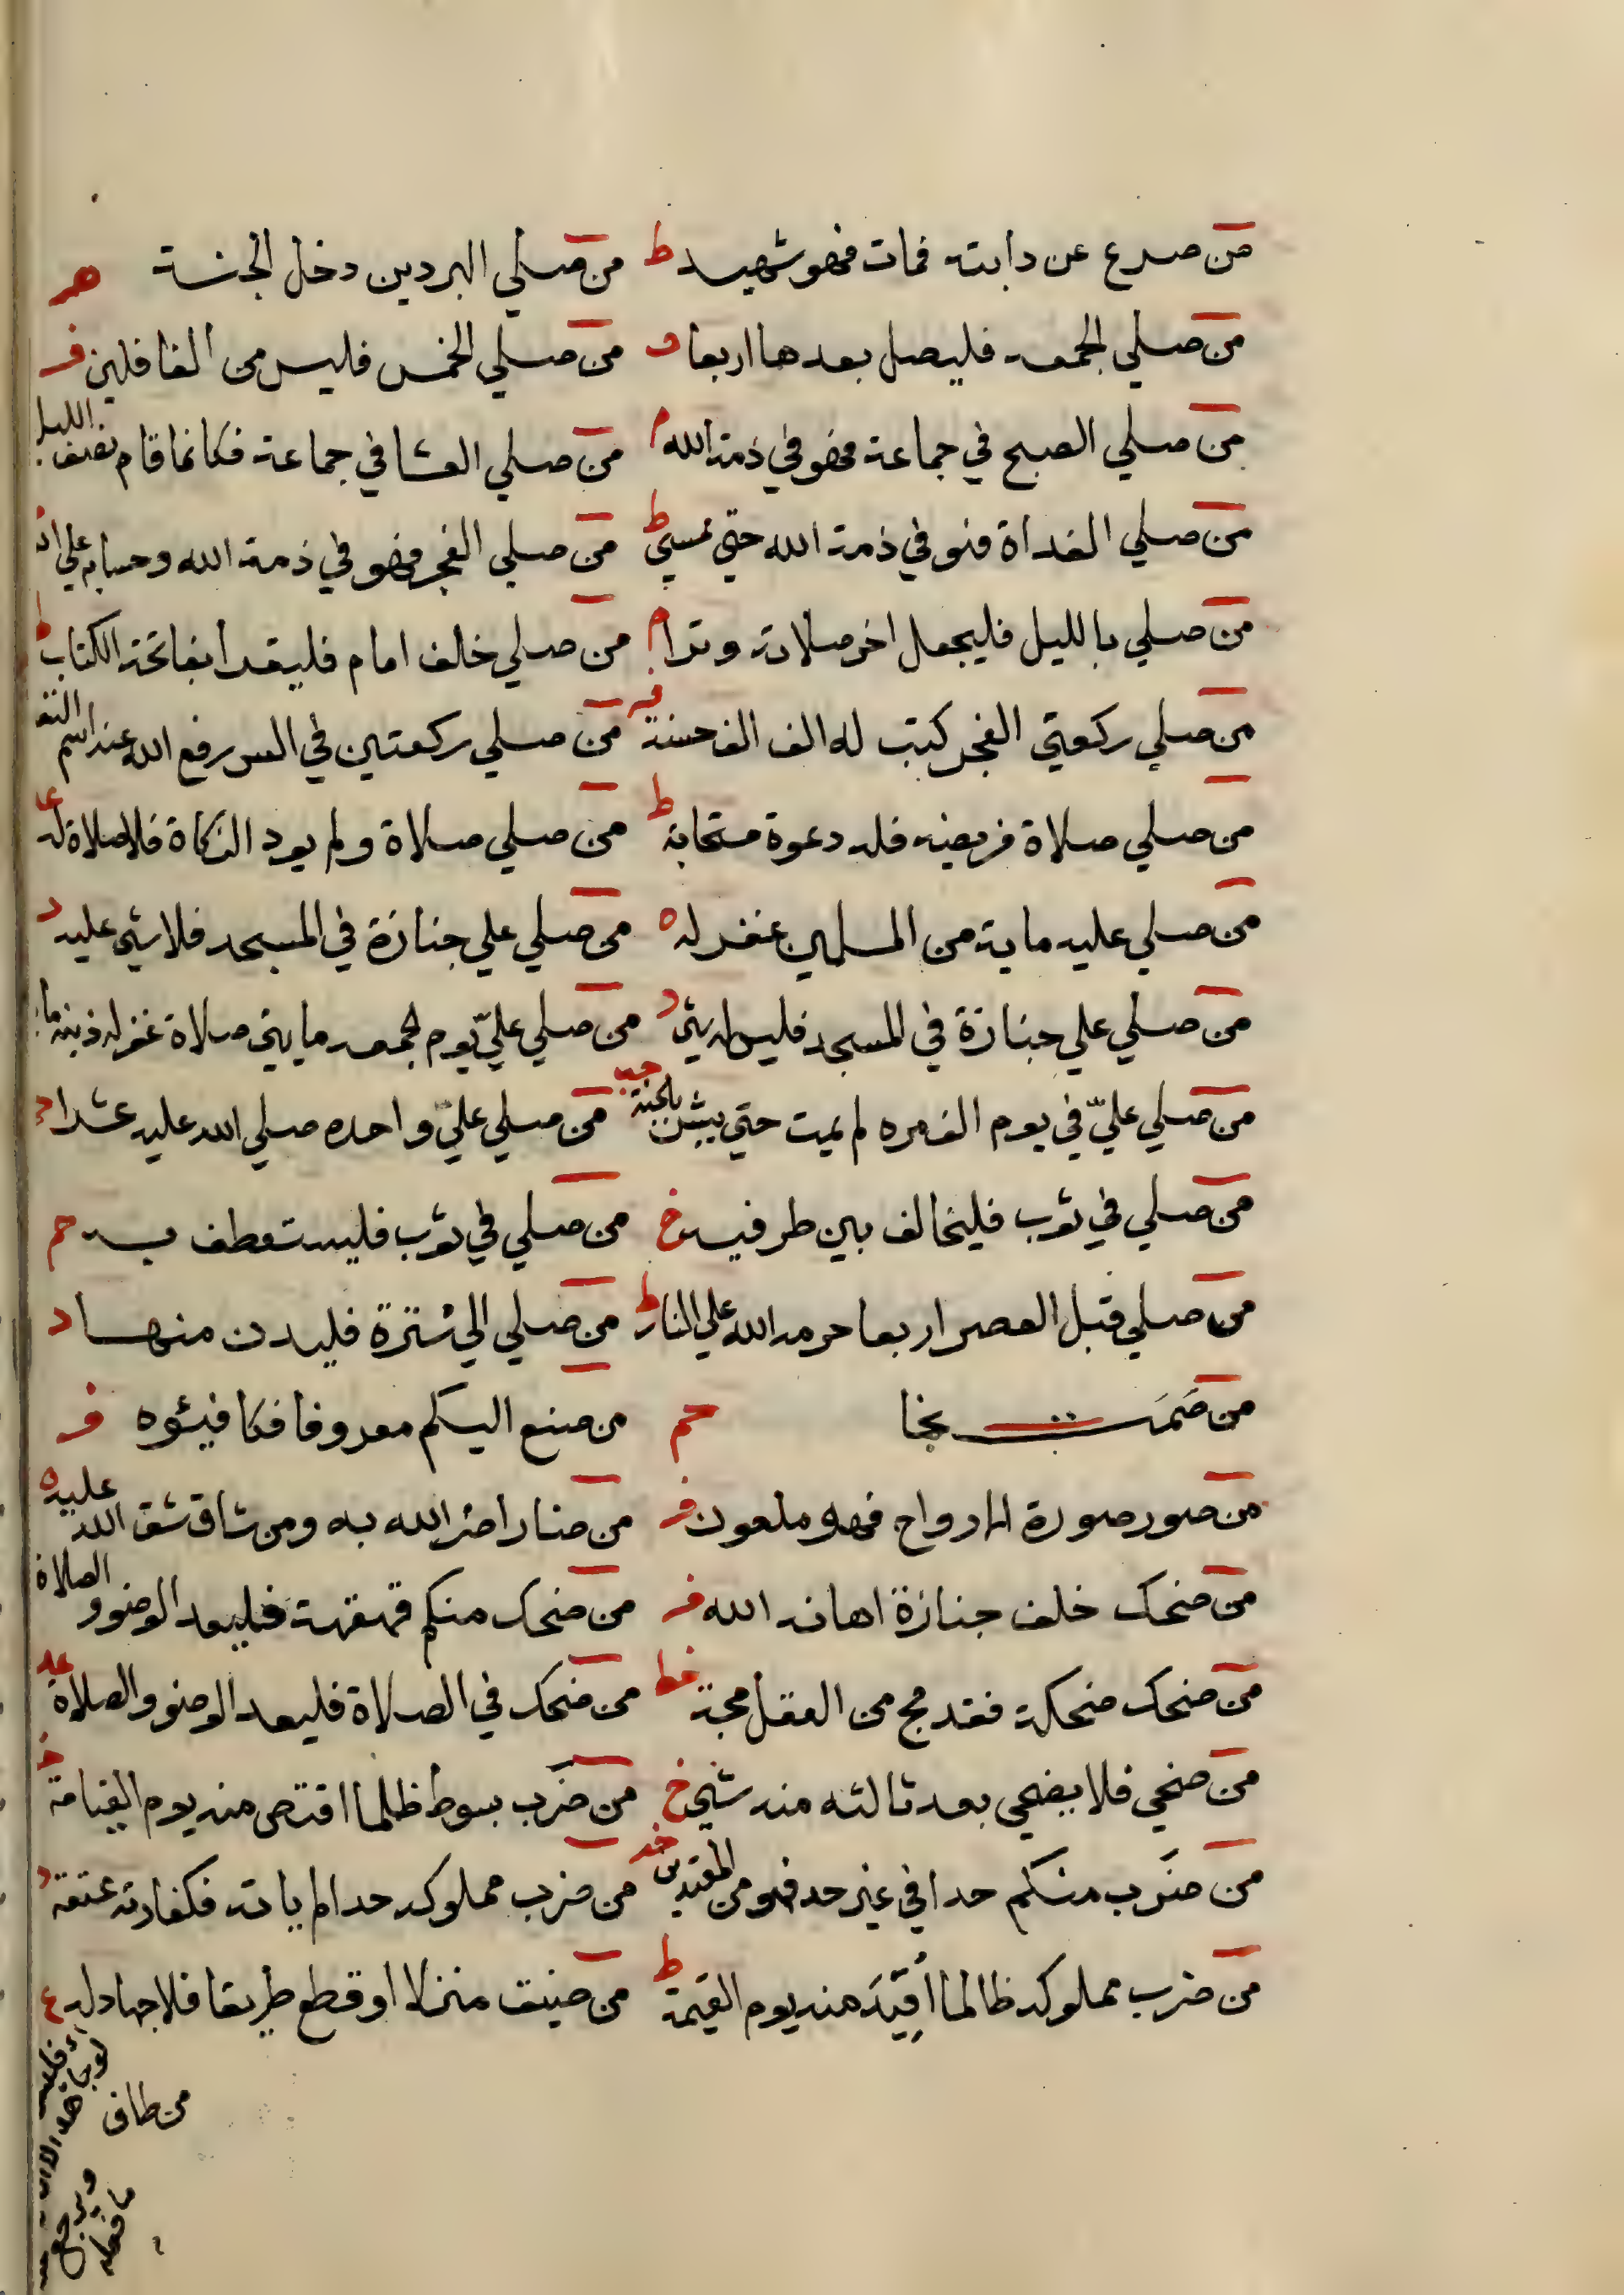 من صرع عن دابته فمات فهو شهيد ط من صلي البردين دخل الجنة هر
من صلي الجمعه فليصل بعدها اربعا و من صلي الخمس فليس من الغافلين فر
من صلي الصبح في جماعة فهو في ذمة الله م من صلي العشا في جماعة فكانما قام نصف الليل
من صلي الغداة فهو في ذمة الله حتي يمسي ط من صلي الفجر فهو في ذمة الله وحسابه علي الله
من صلي بالليل فليجعل اخر صلاته وترا م من صلي خلف امام فليقرا بفاتحة الكتاب ط
من صلي ركعتي الفجر كتب له الف الف حسنة فر من صلي ركعتين في السر رفع الله عنه اسم النفا
من صلي صلاة فريضه فله دعوة مستجابة ط من صلي صلاة ولم يود الزكاة فلا صلاة له عا
من صلي عليه ماية من المسلمين غفر له ه من صلي علي جنازة في المسجد فلا شي عليه د
من صلي علي جنازة في المسجد فليس له شي د من صلي عليّ يوم الجمعه مايتي صلاة غفر له ذنبه
من صلي عليّ في يوم الف مره لم يمت حتي يبشر بالجنة حب من صلي عليّ واحده صلي الله عليه عشرا م
من صلي في ثوب فليخالف بين طرفيه خ من صلي في ثوب فليستعطف به حم
من صلي قبل العصر اربعا حرمه الله علي النار ط من صلي الي سترة فليدن منها د
من صَمَت نجا حم من صنع اليكم معروفا فكافيئوه فر
من صور صورة الارواح فهو ملعون فر من ضار اضر الله به ومن شاق شق الله عليه ه
من ضحك خلف جنازة اهانه الله فر من ضحك منكم قهقهة فليعد الوضوو الصلاة
من ضحك ضحكة فقد مج من العقل مجة خط من ضحك في الصلاة فليعد الوضو والصلاة عد
من ضحي فلا يضحي بعد ثالثه منه شي خ من ضرب بسوط ظلما اقتص منه يوم القيامة خد
من ضرب منكم حدا في غير حد فهو من المعتدين خد من ضرب مملوكه حدا لم ياته فكفارته عتقه د
من ضرب مملوكه ظالما أُقِيد منه يوم القيمة ط من ضيق منزلا او قطع طريقا فلا جهاد له ع
من طاف